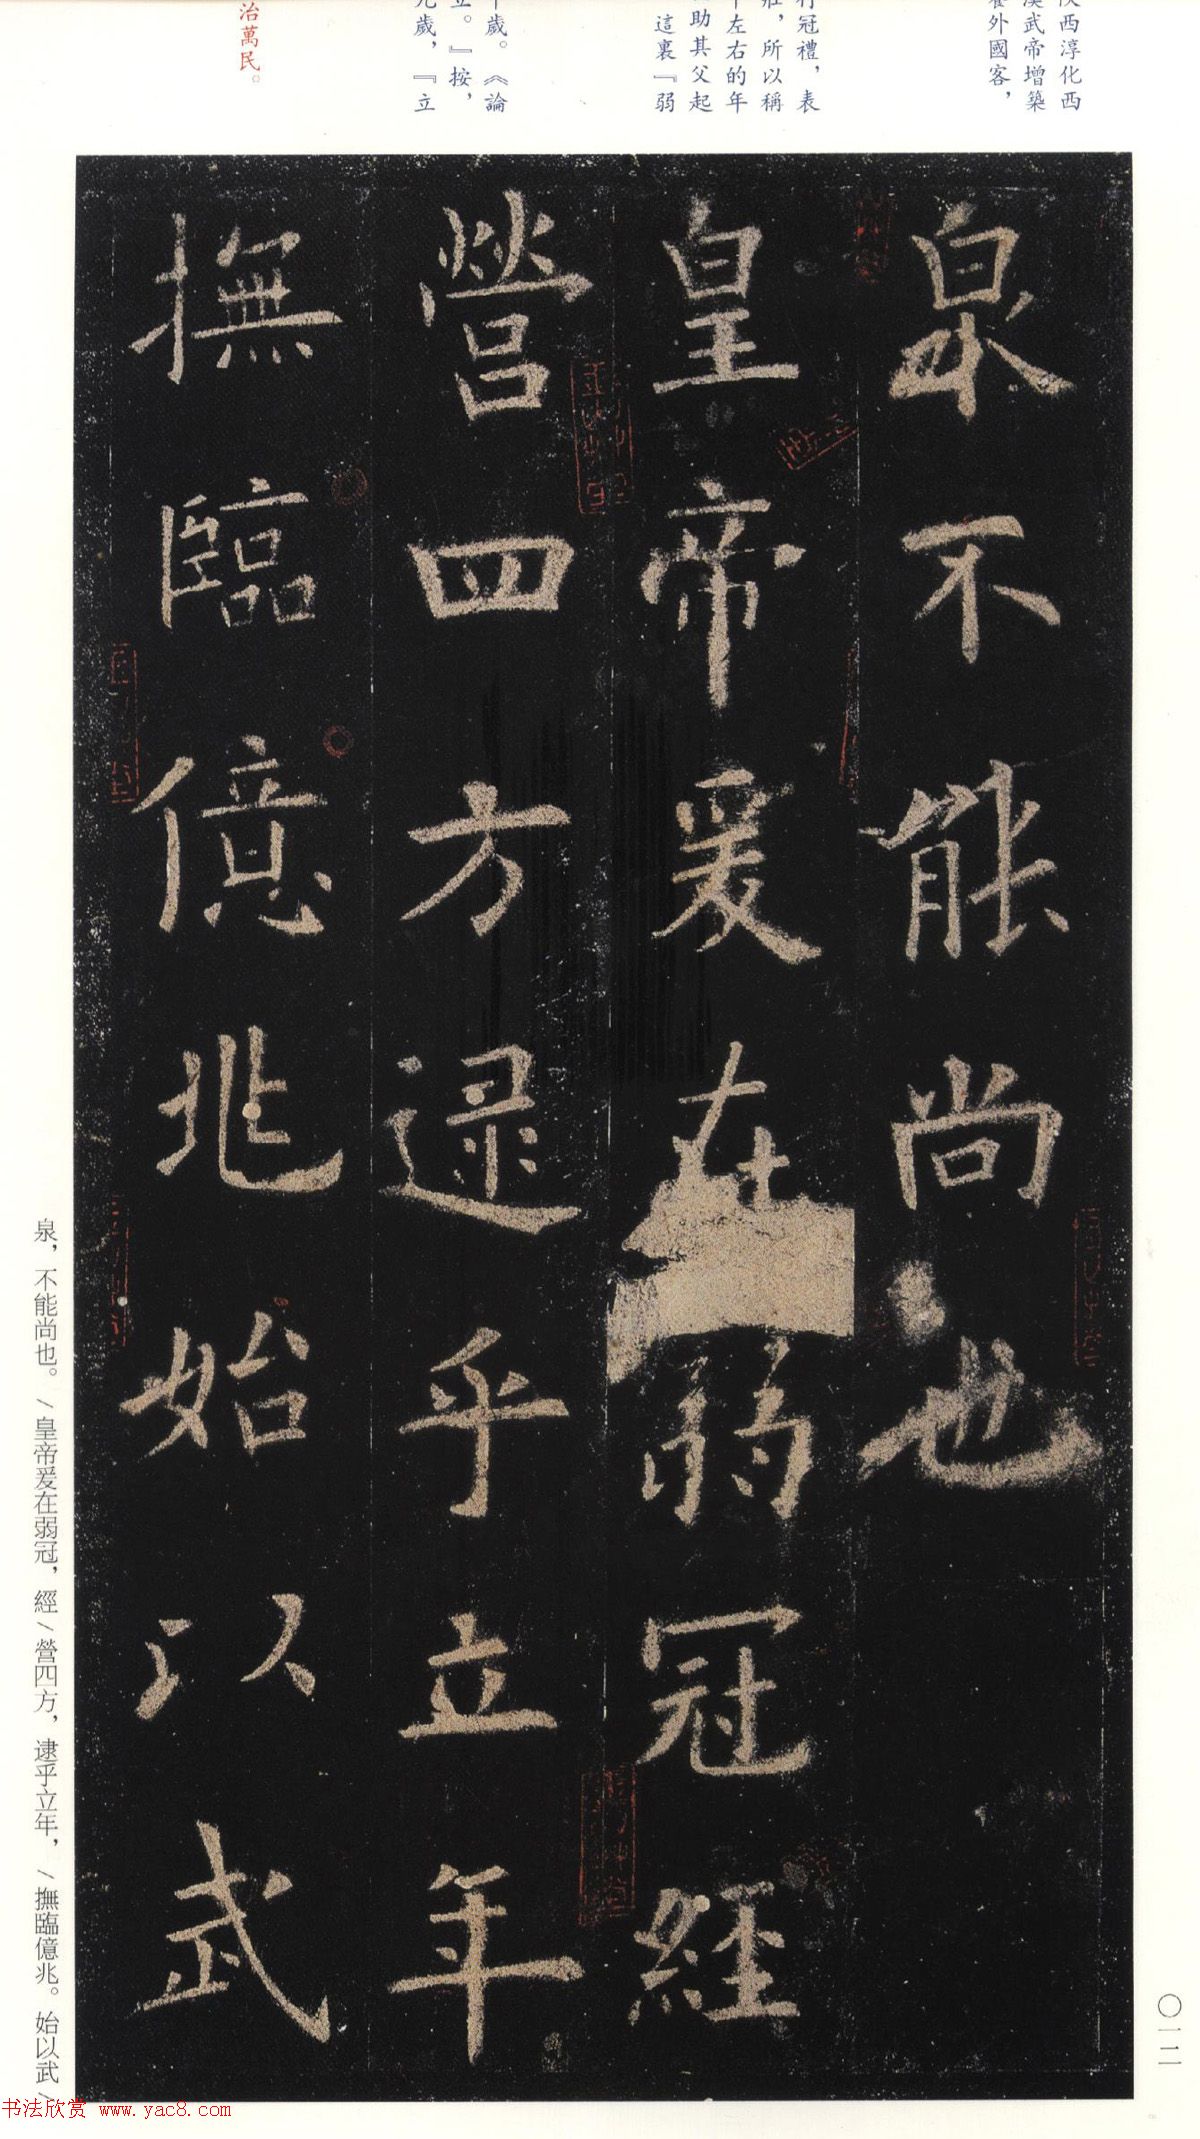 陜西淳化西
漢武帝增築
外國客，
行冠禮，表
壯，所以稱
年左右的年
助其父起
這裏『弱
十歲。《論
立。』按，
九歲，『立
治萬民。
泉不能尚也
皇帝爰在弱冠經
營四方逮乎立年
撫臨億兆始以武
泉，不能尚也。/皇帝爰在弱冠，經/營四方，逮乎立年，/撫臨億兆。始以武/
〇一二
书法欣赏 www.yac8.com